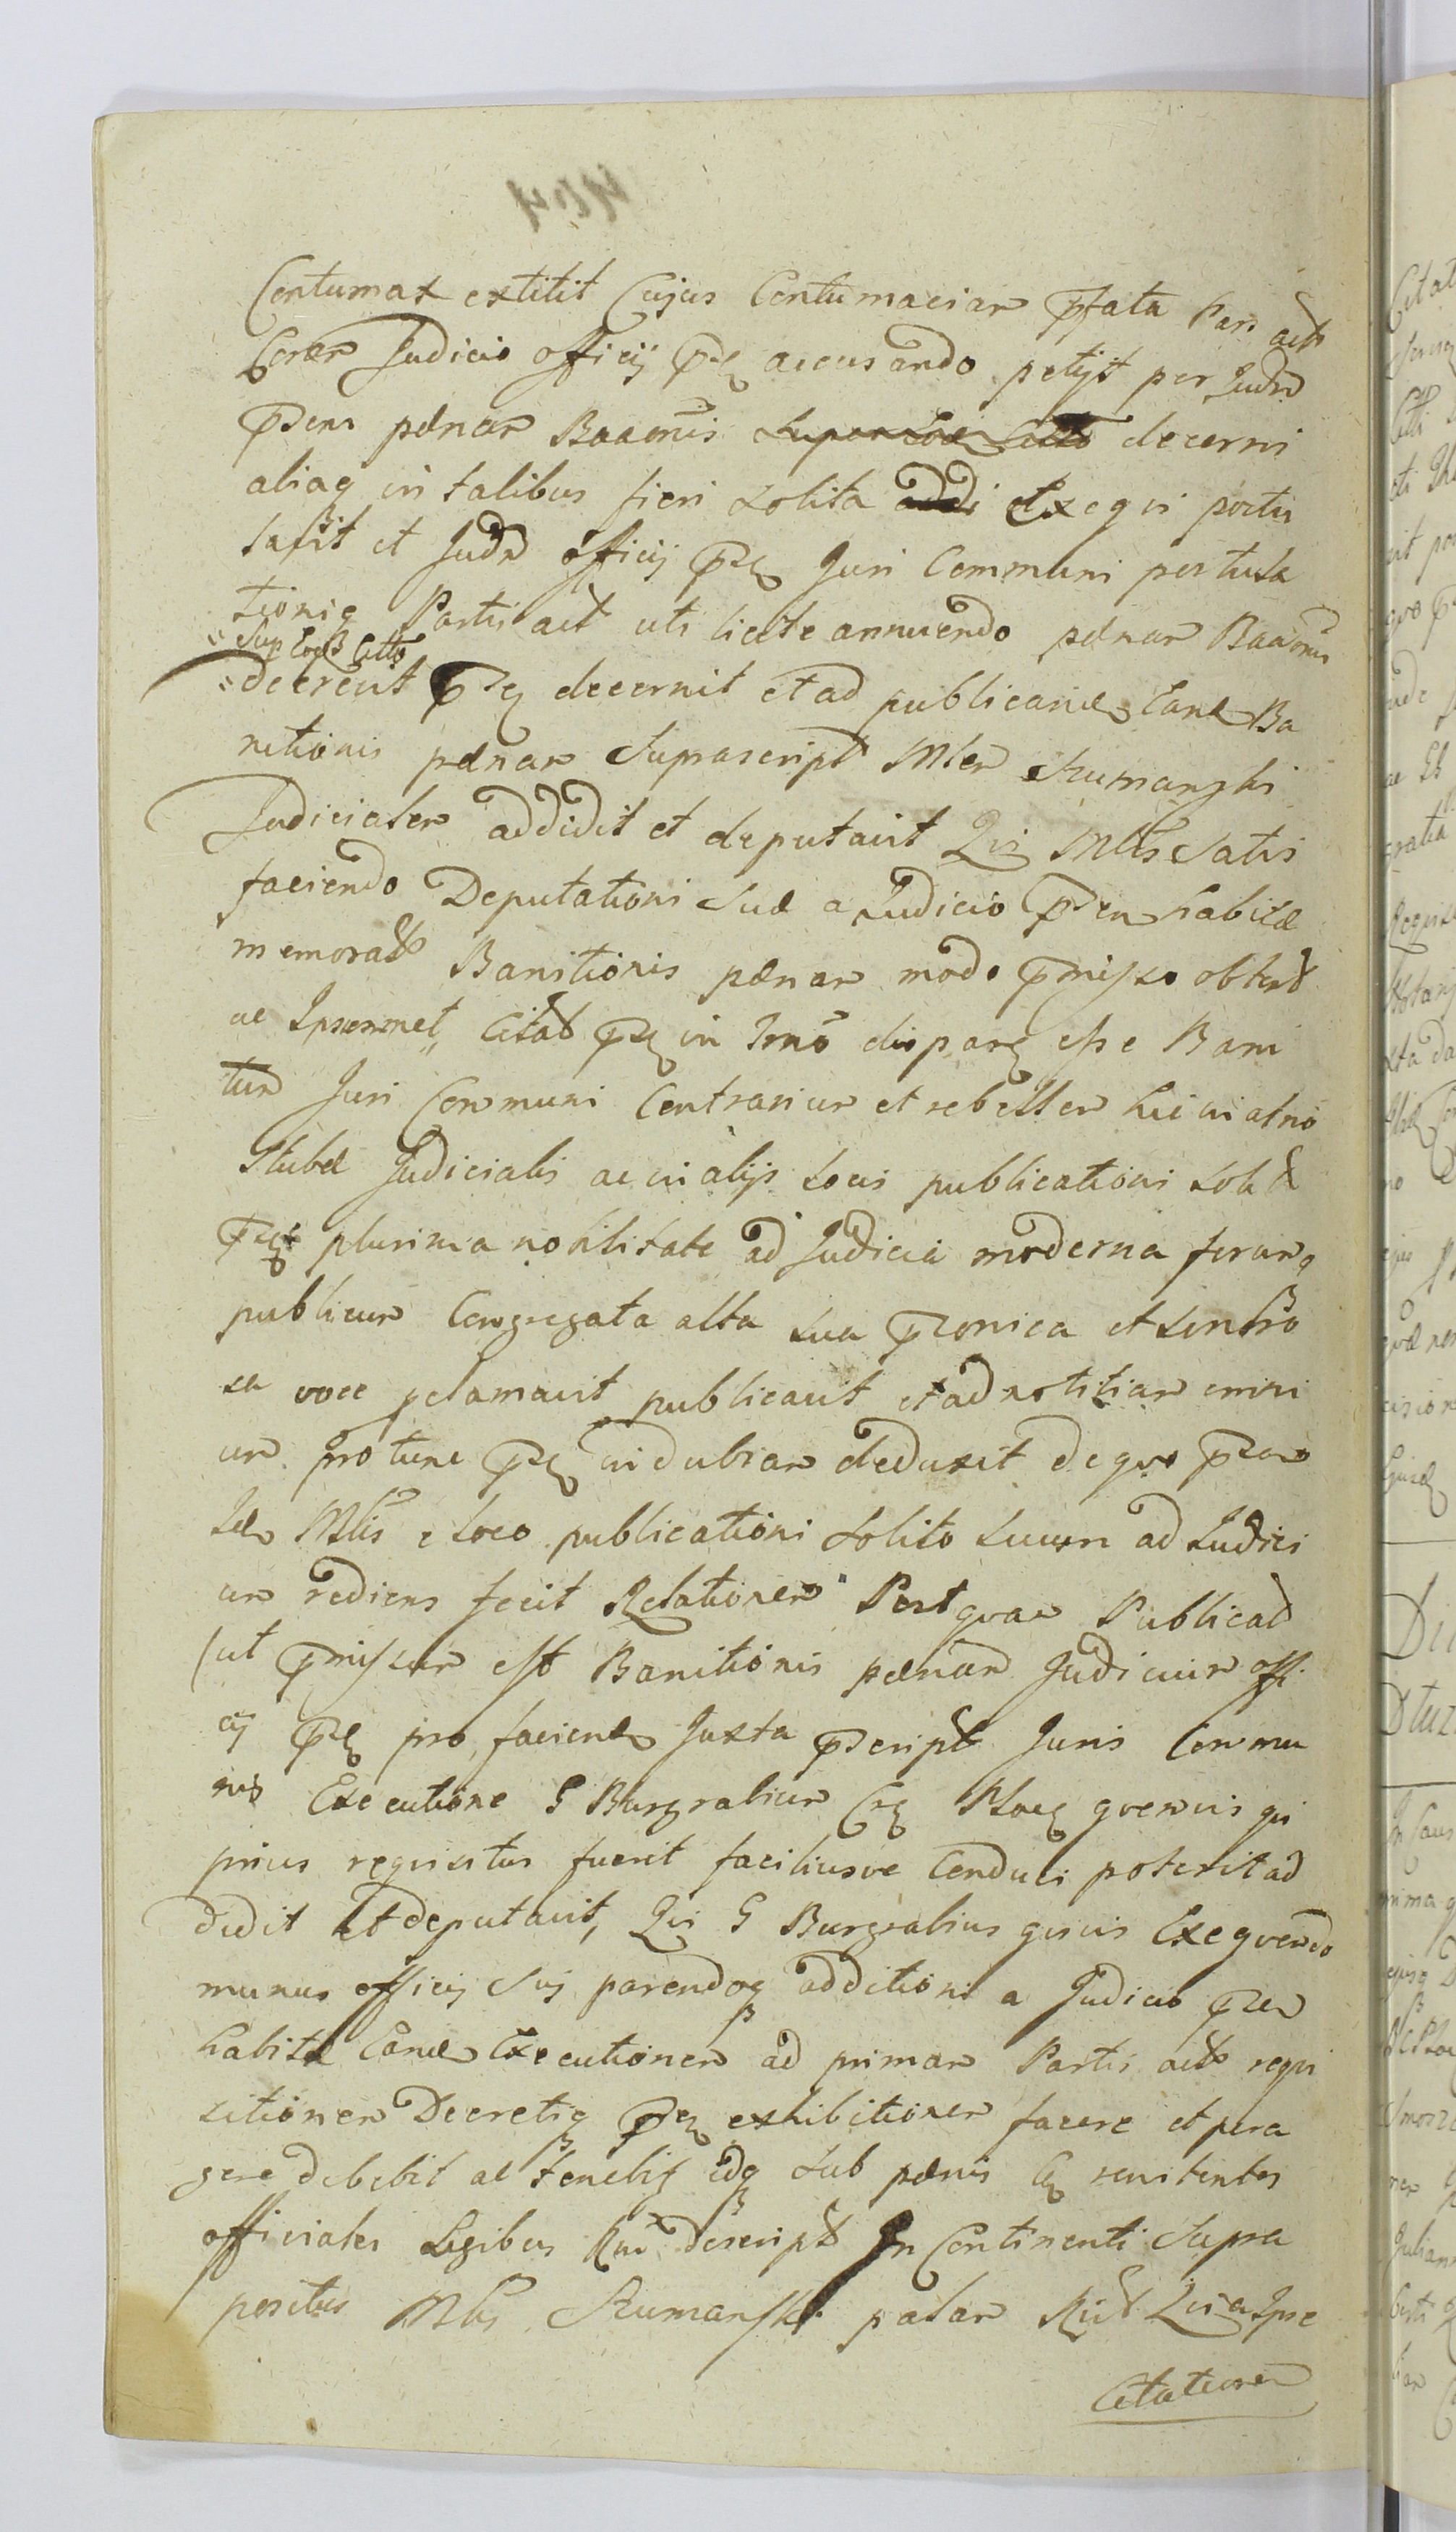 Contumax extitit Cujus Contumaciam pfata Pars act
Coram Judicio officij accusando petijt per Judm
psens pænam Baaonis decerni
aliaq in talibus fieri solita Exequi
et Judm officij Juri Communi
tioniq Partis act uti licite annuendo pænam Baaonis
decrevit decernit et ad publicand Eand Ba
nitionis pænam Suprascript Mlem Rumanski
Judicialem addidit et deputavit Qui Mlis Satis
faciendo Deputationi Suæ a Judicio psen habitæ
memorat Banitionis pænam modo pmisso obtent
ac Ipsummet Citat in Tmno disparq esse Bani
tum Juri Communi Contrarium et rebellem hic in atrio
Stubæ Judicialis ac in alijs Locis publicationi solit
plurima nobilitate ad Judicia moderna forumq
publicum Congregata alta sua pconica et
sa voce pclamavit publicavit et ad notitiam omni
um pro tunc indubiam deduxit de quo
Mlis e Loco publicationi solito suum ad Judici
um rediens fecit Relationem Post quam Publicat
(ut pmissum est Banitionis pænam Judicium offi
cij pro faciend Juxta pscript Juris Commu
nis Executione G Burgrabium quemvis qi
prius requisitus fuerit faciliusve Conduci poterit ad
didit et deputavit, Qui G Burgrabius quivis Exequendo
munus officij sui parendoq additioni a Judicio psen
habitæ Eand Executionem ad primam Partis act requi
sitionem Decretiq exhibitionem facere et pera
gere debebit ac tenebit idq sub pænis renitentes
officiales Legibus Rni descript In Continenti Supra
positus Mlis Rumanski palam Qui a Ipse
Citationem